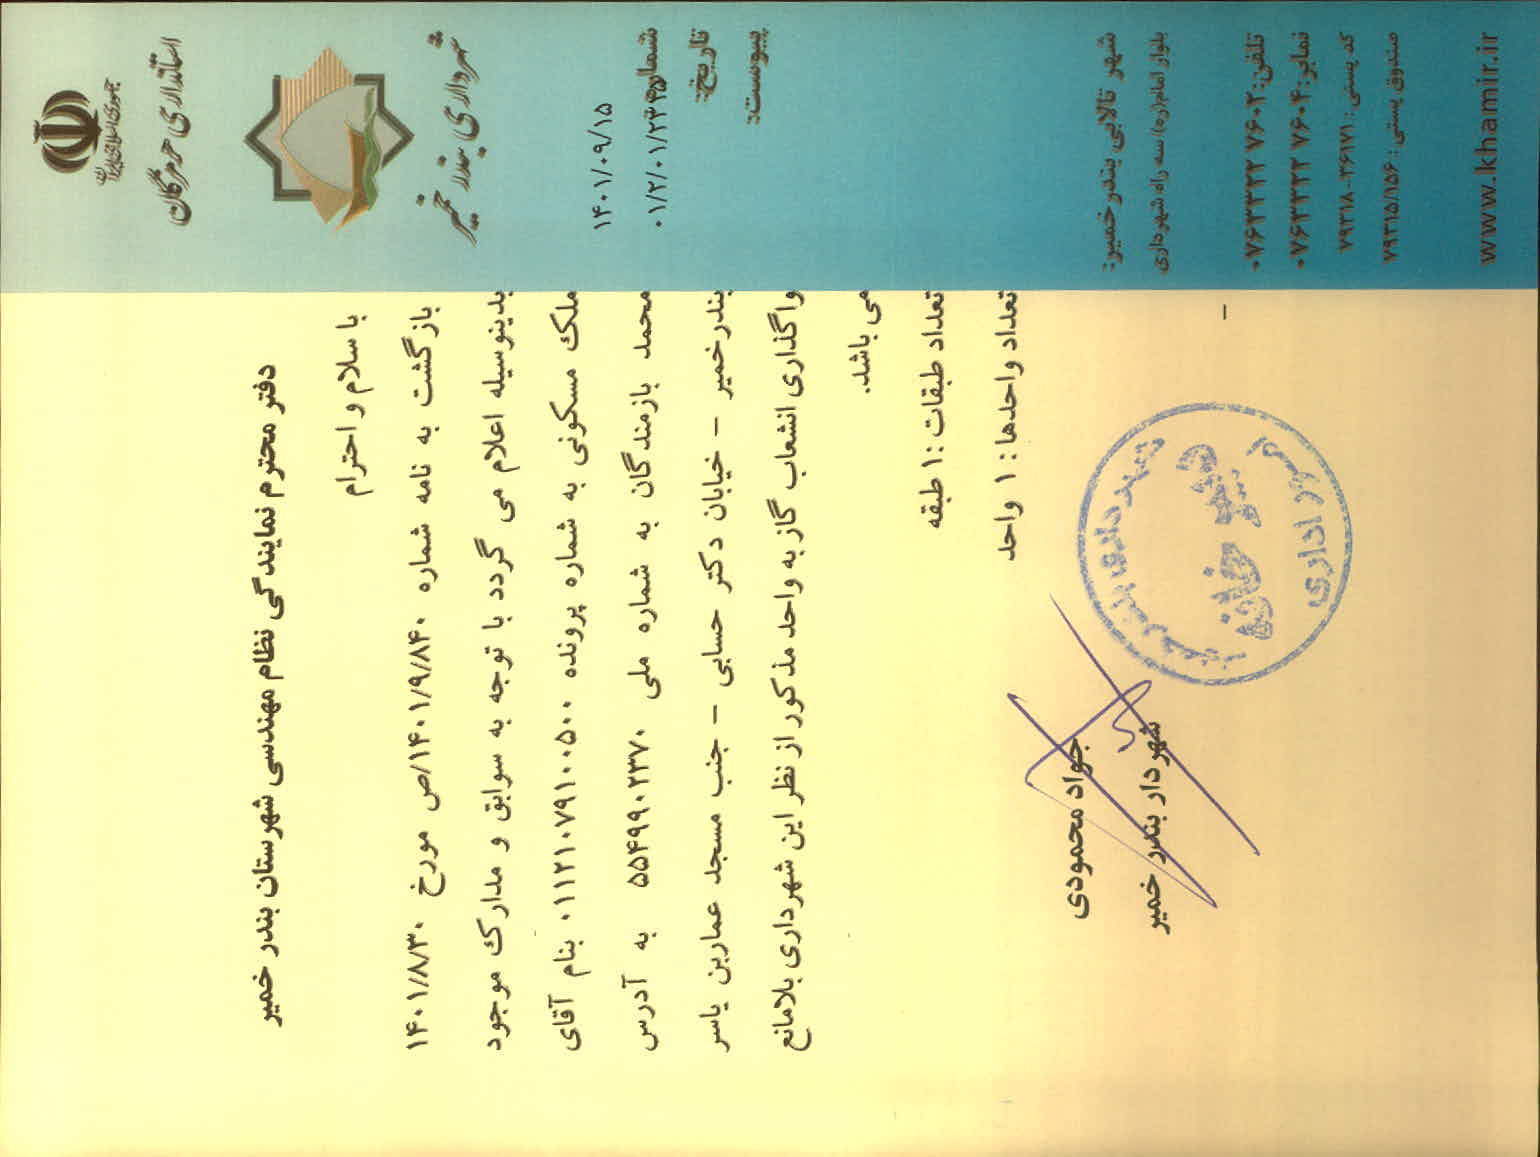 جمهوری اسلامی ایران
استانداری هرمزگان
شهرداری بندر خمیر
۱۴۰۱/۰۹/۱۵
شماره:
۰۱/۲/۰۱/۲۴
تاریخ:
پیوست:
شهر تالابی بندر خمیر:
بلوار امام(ره) سه راه شهرداری
تلفن: ۰۷۶۳۳۲۲ ۷۶۰۲
نمابر: ۰۷۶۳۳۲۳ ۷۶۰۴
کد پستی: ۷۹۳۱۸-۳۶۱۷۱
صندوق پستی: ۷۹۳۱۵/۱۵۶
www.khamir.ir
دفتر محترم نمایندگی نظام مهندسی شهرستان بندر خمیر
با سلام و احترام
بازگشت به نامه شماره ۱۴۰۱/۹/۸۴۰/ص مورخ ۱۴۰۱/۸/۳۰
بدینوسیله اعلام می گردد با توجه به سوابق و مدارک موجود
ملک مسکونی به شماره پرونده ۰۱۱۲۱۰۷۹۱۰۰۵۰۰ بنام آقای
محمد بازمندگان به شماره ملی ۵۵۴۹۹۰۲۳۷۰ به آدرس
بندرخمیر - خیابان دکتر حسابی - جنب مسجد عماربن یاسر
واگذاری انشعاب گاز به واحد مذکور از نظر این شهرداری بلامانع
می باشد.
تعداد طبقات :۱ طبقه
تعداد واحدها : ۱ واحد
-
جواد محمودی
شهردار بندر خمیر
شهرداری بندر خمیر
دبیر خانه
امور اداری